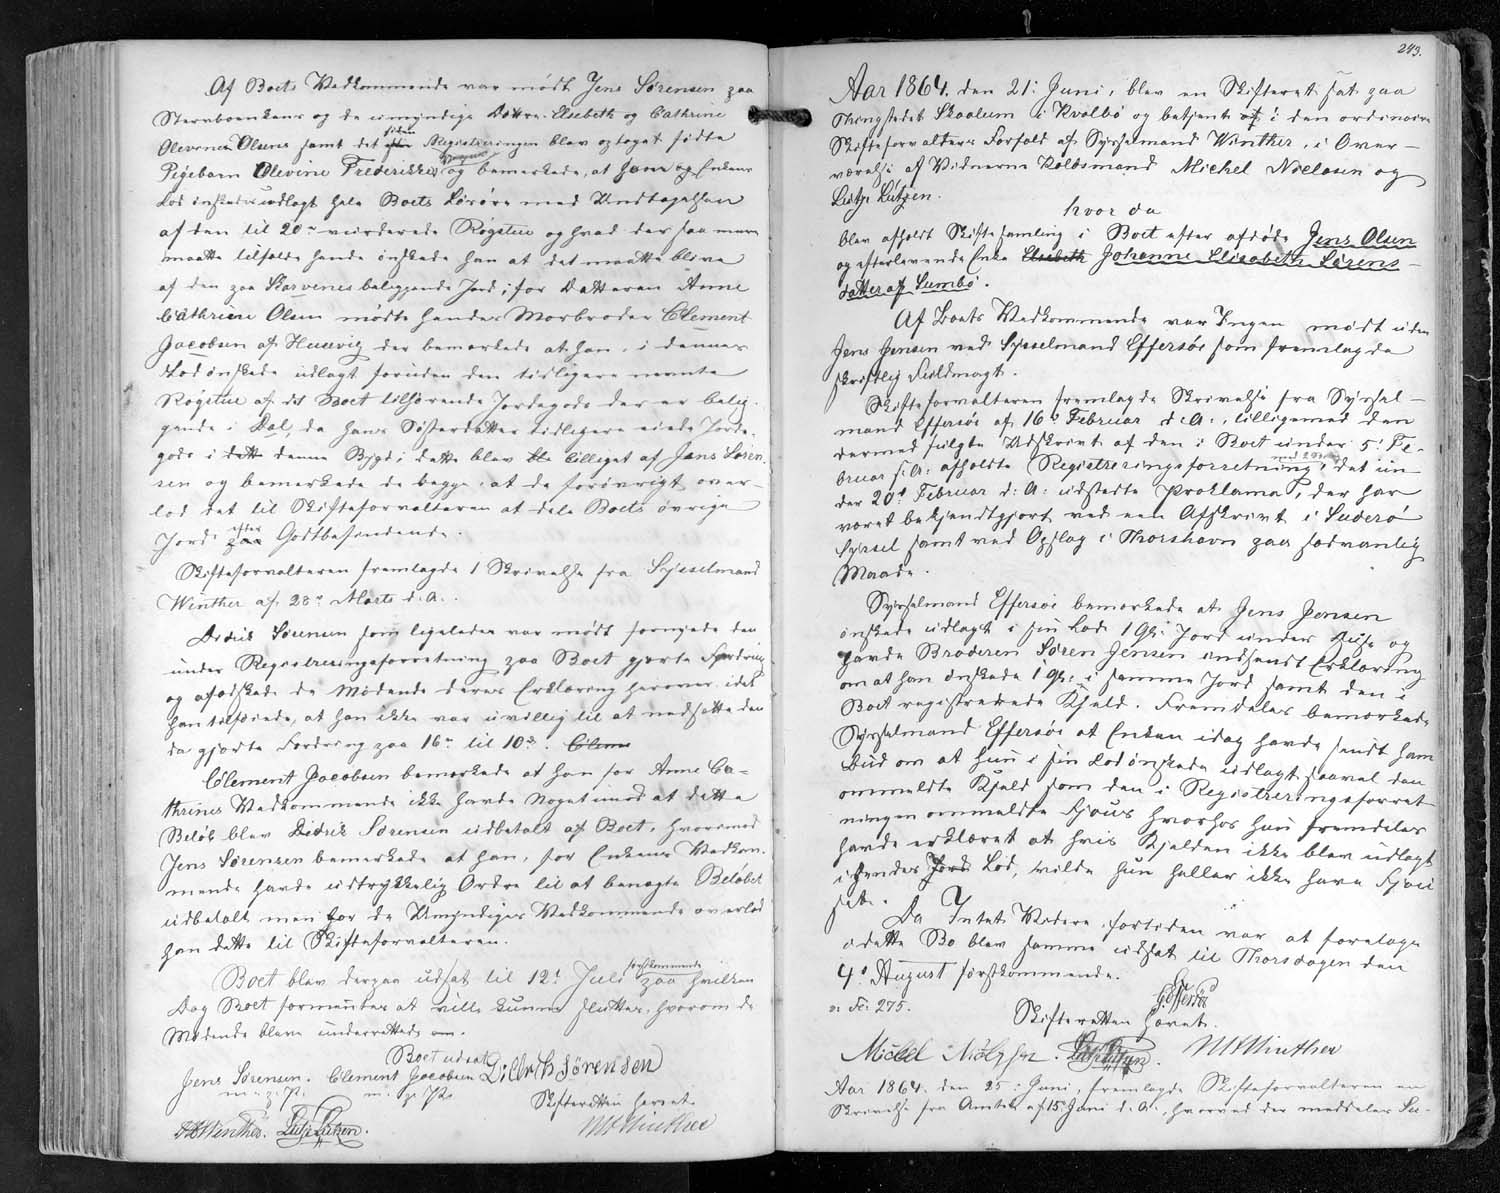 Af Boets Vedkommende var mødt Jens Sørensen paa
Stervboenkens og de umyndige Døttre Elsebeth og Cathrine
Olevine Olsens samt det siden Registreringen blev optaget fødte
Pigebarn Olevine Frederikke og bemærkede, at Enken
Lod ønskede udlagt hele Boets Løsøre med Undtagelse
af den til 20 vurderede Røgstue og hvad der saa mere
maatte tilfalde hende ønskede han at det maatte blive
af den paa Skarvenes beliggende Jord; for Datteren Anne
Cathrine Olsen mødte hendes Morbroder Clement
Jacobsen af Husevig der bemærkede at han i dennes
Lod ønskede udlagt foruden den tidligere nævnte
Røgstue af det Boet tilhørende Jordegods der er belig-
gende i Dal, da hans Søsterdatter tidligere eiede Jorde-
gods i denne Bygd; dette blev billiget af Jens Søren-
sen og bemærkede de begge, at de forøvrigt over-
lod det til Skifteforvalteren at dele Boets øvrige
Jord efter Godtbefindende.
Skifteforvalteren fremlagde 1 Skrivelse fra Sysselmand
Winther af 28 Marts d. A.
Didrik Sørensen som ligeledes var mødt fornyede den
under Registreringsforretning paa Boet gjorte Fordring
og æskede de Mødende deres Erklæring herover idet
han tilføiede, at han ikke var uvillig til at nedsætte den
da gjorte Fordring paa 16 til 10.
Clement Jacobsen bemærkede at han for Anne Ca-
thrines Vedkommende ikke havde Noget imod at dette
Beløb blev Didrik Sørensen udbetalt af Boet, hvorimod
Jens Sørensen bemærkede at han, for Enkens Vedkom-
mende havde udtrykkelig Ordre til at benægte Beløbet
udbetalt men for de Umyndiges Vedkommende overlod
han dette til Skifteforvalteren.
Boet blev derpaa udsat til 12 Juli førstkommende paa hvilken
Dag Boet formentes at ville kunne sluttes, hvorom de
Mødende bleve underrettede om.
Boet udsat
Jens Sørensen. Clement Jacobsen Didrich Sørensen
m. p. P. m. p. P.
Skifteretten hævet.
Winther. Lutz Lützen. Winther
243.
Aar 1864. den 21 Juni, blev en Skifteret sat paa
Thingstedet Skaalum i Kvalbø og betjent i den ordinaire
Skifteforvalters Forfald af Sysselmand Winther, i Over-
værelse af Vidnerne Kolbsmand Michel Nielsen og
Lutz Lützen.
hvor da
blev afholdt Skiftesamling i Boet efter afdøde Jens Olsen
og efterlevende Enke Elsebeth Johanne Elisabeth Sørens-
datter af Sumbø.
Af Boets Vedkommende var Ingen mødt uden
Jens Jensen ved Sysselmand Effersøe som fremlagde
skriftlig Fuldmagt.
Skifteforvalteren fremlagde Skrivelse fra Syssel-
mand Effersøe af 16 Februar d. A., tilligemed den
dermed fulgte Udskrivt af den i Boet under 5 Fe-
bruar s. A. afholdte Registreringsforretning, det un-
der 20 Februar d. A. udstedte Proklama, der har
været bekjendtgjort ved een Afskrivt i Suderø
Syssel samt ved Opslag i Thorshavn paa sædvanlig
Maade.
Sysselmand Effersøe bemærkede at Jens Jensen
ønskede udlagt i sin Lod 1 Gl. Jord under Huse og
havde Broderen Søren Jensen indsendt Erklæring
om at han ønskede 1 Gl. i samme Jord samt den i
Boet registrerede Kjeld. Fremdeles bemærkede
Sysselmand Effersøe at Enken idag havde sendt ham
Bud om at hun i sin Lod ønskede udlagt saavel den
ommeldte Kjeld som den i Registreringsforret-
ningen ommeldte hvorhos hun fremdeles
havde erklæret at hvis Kjelden ikke blev udlagt
i hendes Jord Lod, vilde hun heller ikke have
Da Intet Videre fortiden var at foretage
i dette Bo blev samme udsat til Thorsdagen den
4 August førstkommende.
v. Fo. 275. G. Effersøe
Skifteretten hævet.
Michel Nielsen. Lutz Lützen. Winther
Aar 1864. den 25 Juni, fremlagde Skifteforvalteren en
Skrivelse fra Amtet af 15 Juni d. A., hvorved der meddeles Su-